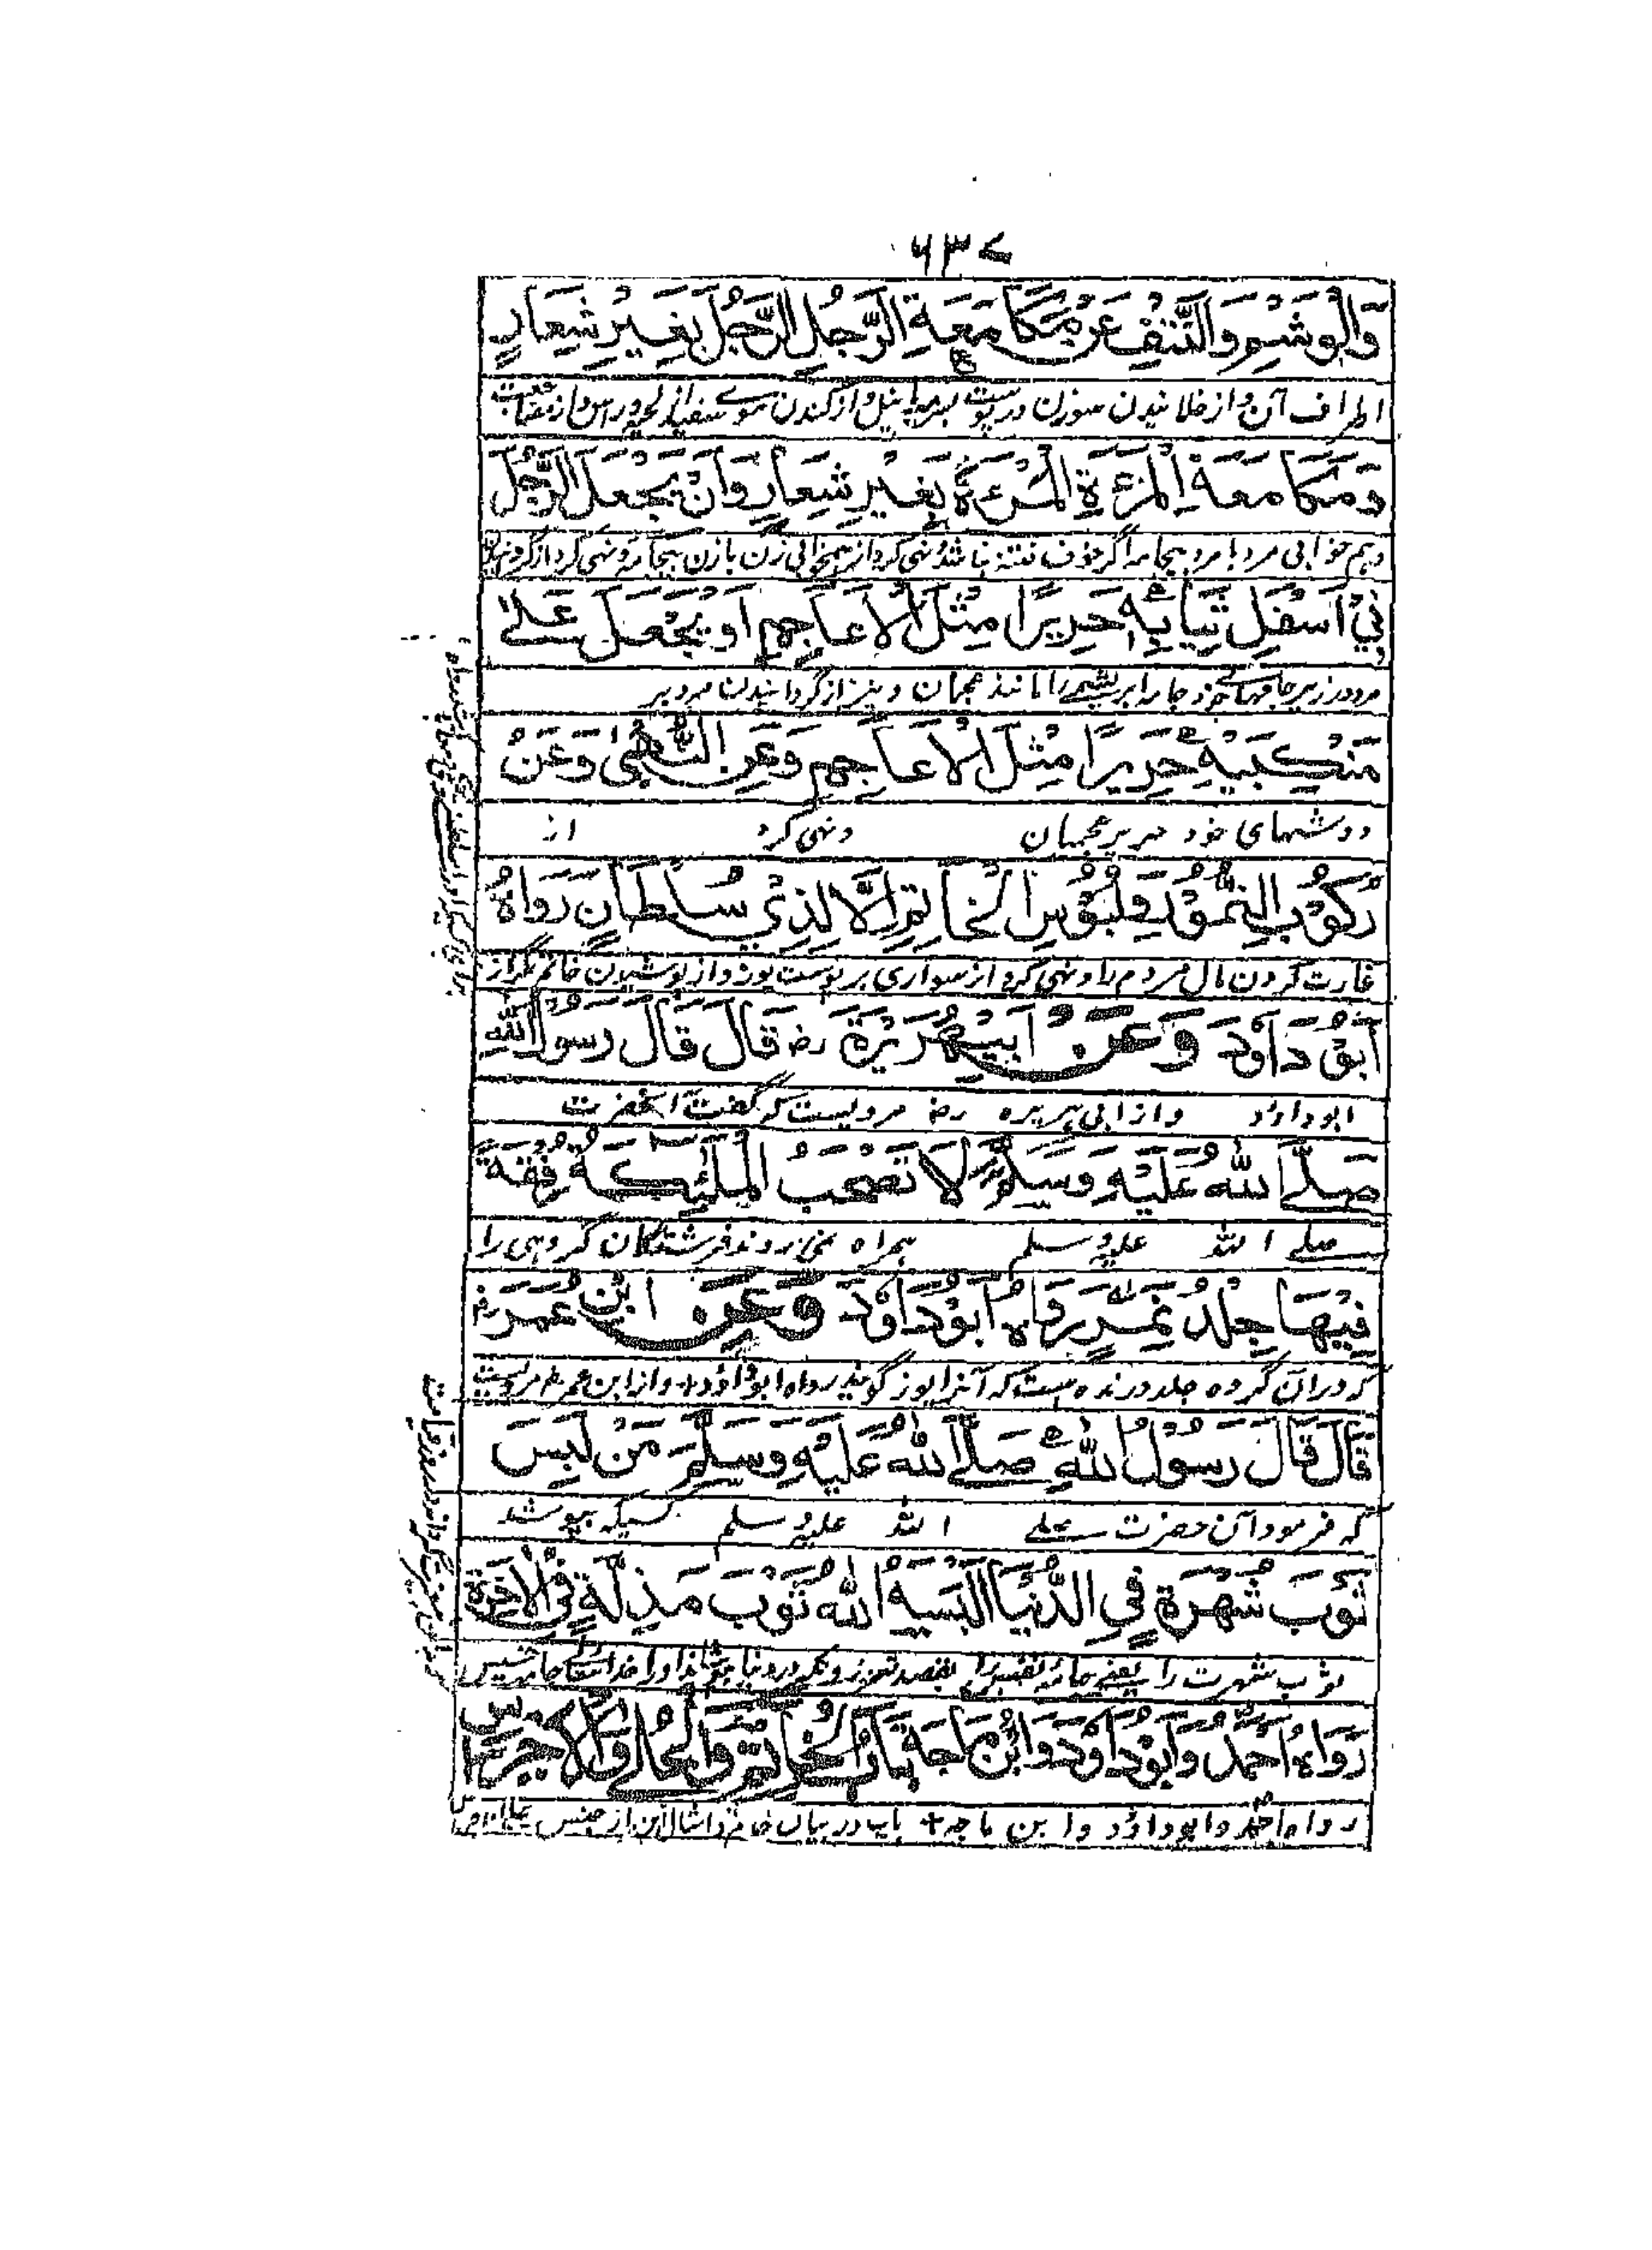 ۶۳۷
وَالْوَشْمِ وَالنَّتْفِ عَنْ مُكَامَعَةِ الرَّجُلِ الرَّجُلَ بِغَيْرِ شِعَارٍ
اطراف آن و از خلانیدن سوزن در پوست نیل و از کندن موے سفید از
وَمُكَامَعَةِ الْمَرْءَةِ الْمَرْءَةَ بِغَيْرِ شِعَارٍ وَاَنْ يَجْعَلَ الرَّجُلُ
و هم خوابی مرد با مرد بیجامه اگر خوف فتنه نباشد و نهی کرد از همخوابی زن با زن بیجامه و نهی کرد از
فِيْ اَسْفَلِ ثِيَابِهٖ حَرِيْرًا مِثْلَ الْاَعَاجِمِ اَوْ يَجْعَلَ عَلٰے
مرد در زیر جامهائے خود جامه ابریشمے را مانند عجمان و نیز از گردانیدن مرد بر
مَنْكِبَيْهِ حَرِيْرًا مِثْلَ الْاَعَاجِمِ وَعَنِ النُّهْبٰى وَعَنْ
دوشهای خود حریر عجمان و نهی کرد از
رُكُوْبِ النُّمُوْرِ وَلُبُوْسِ الْخَاتَمِ اِلَّا لِذِيْ سُلْطَانٍ رَوَاهُ
غارت کردن مال مردم را و نهی کرد از سواری بر پوست یوز و از پوشیدن خاتم مگر از
اَبُوْ دَاوٗدَ وَعَنْ اَبِيْ هُرَيْرَةَ رضہ قَالَ قَالَ رَسُوْلُ اللّٰهِ
ابوداؤد و از ابی هریره رضہ مرویست که گفت آنحضرت
صَلَّے اللّٰهُ عَلَيْهِ وَسَلَّمَ لَا تَصْحَبُ الْمَلٰئِكَةُ رُفْقَةً
صلے الله علیه وسلم همراه نمی روند فرشتگان گروهی را
فِيْهَا جِلْدُ نَمِرٍ رَوَاهُ اَبُوْ دَاوٗدَ وَعَنِ ابْنِ عُمَرَ رضہ
که در آن گروه جلد درنده هست که آنرا یوز گویند رواه ابوداؤد و از ابن عمر رضہ مرویست
قَالَ قَالَ رَسُوْلُ اللّٰهِ صَلَّے اللّٰهُ عَلَيْهِ وَسَلَّمَ مَنْ لَبِسَ
که فرمود آن حضرت صلے الله علیه وسلم کسیکه بپوشد
ثَوْبَ شُهْرَةٍ فِي الدُّنْيَا اَلْبَسَهُ اللّٰهُ ثَوْبَ مَذِلَّةٍ فِي الْاٰخِرَةِ
ثوب شهرت را یعنے جامه نفیس را بقصد تعزز و تکبر در دنیا بپوشاند او را خدا تعالے جامه
رَوَاهُ اَحْمَدُ وَاَبُوْ دَاوٗدَ وَابْنُ مَاجَةَ بَابُ الْخَاتَمِ وَالْحُلِيِّ وَالْجَرَسِ
رواه احمد و ابوداؤد و ابن ماجه + باب در بیان خاتم و امثال این از جنس